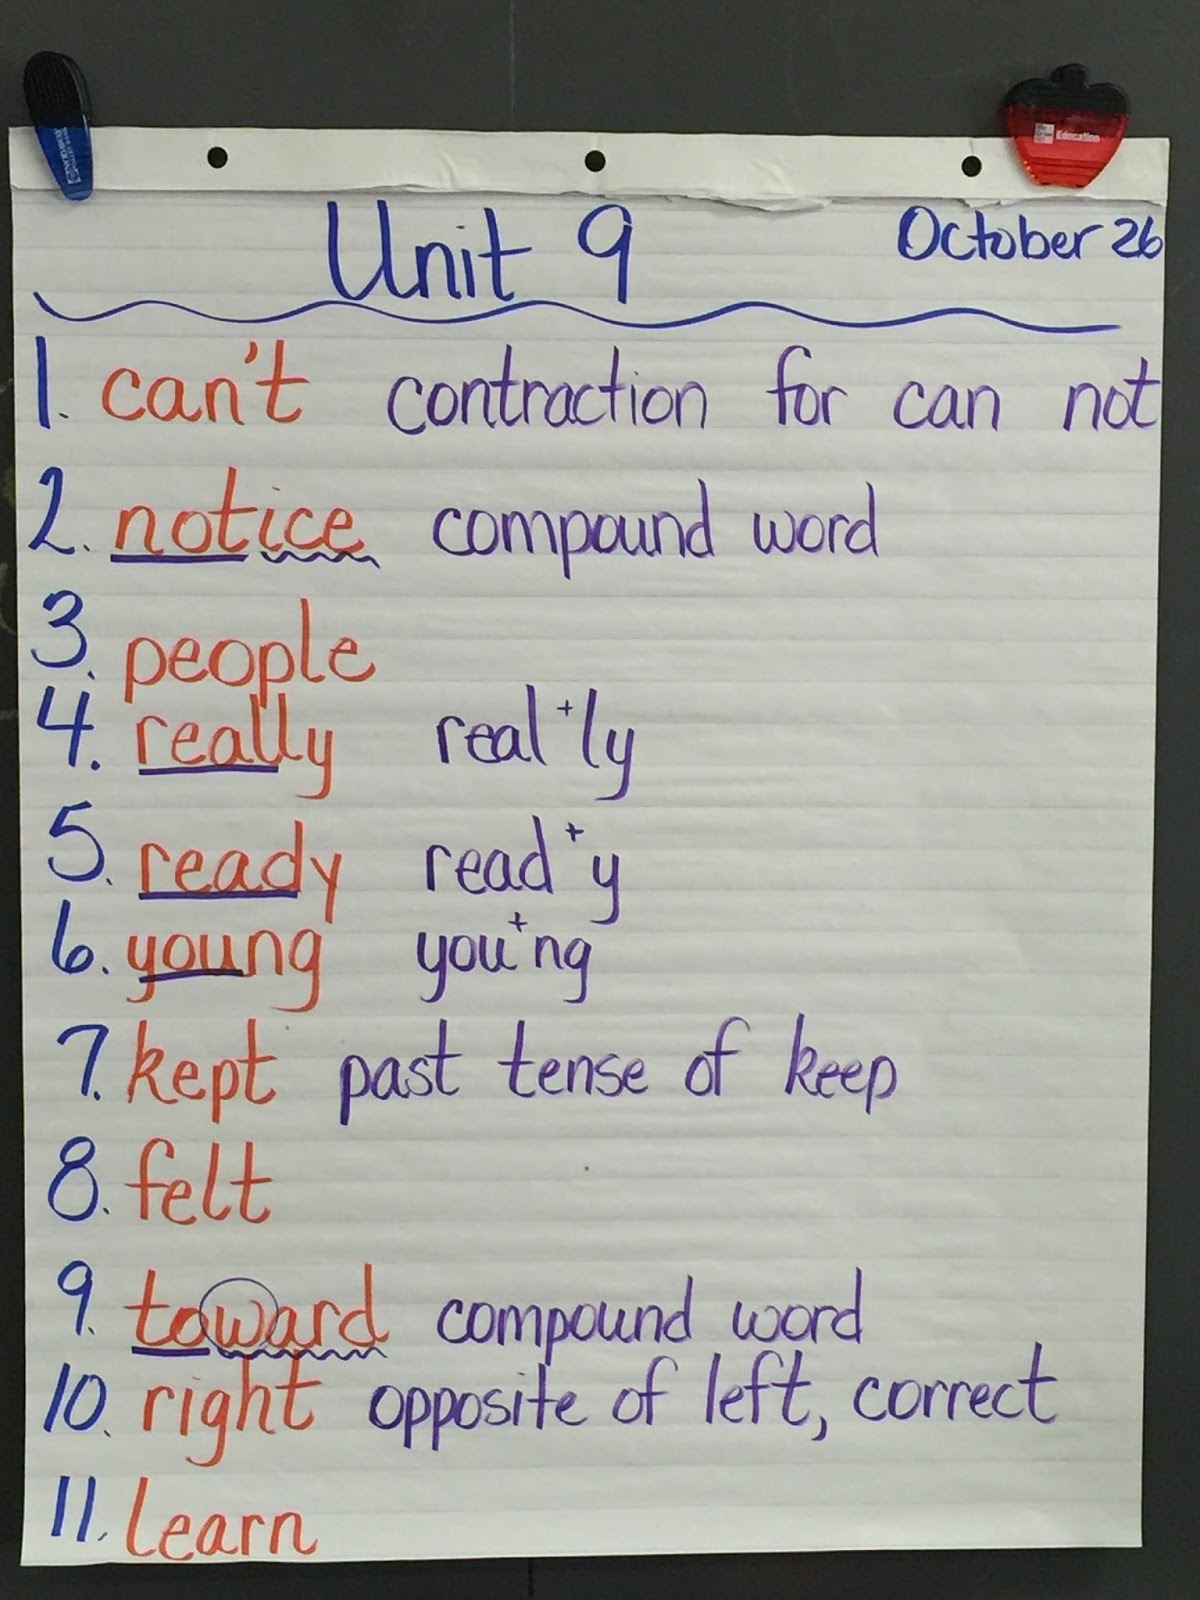 Education
Unit 9 October 26
1. can't contraction for can not
2. notice compound word
3. people
4. really real + ly
5. ready read + y
6. young you + ng
7. kept past tense of keep
8. felt
9. toward compound word
10. right opposite of left, correct
11. learn